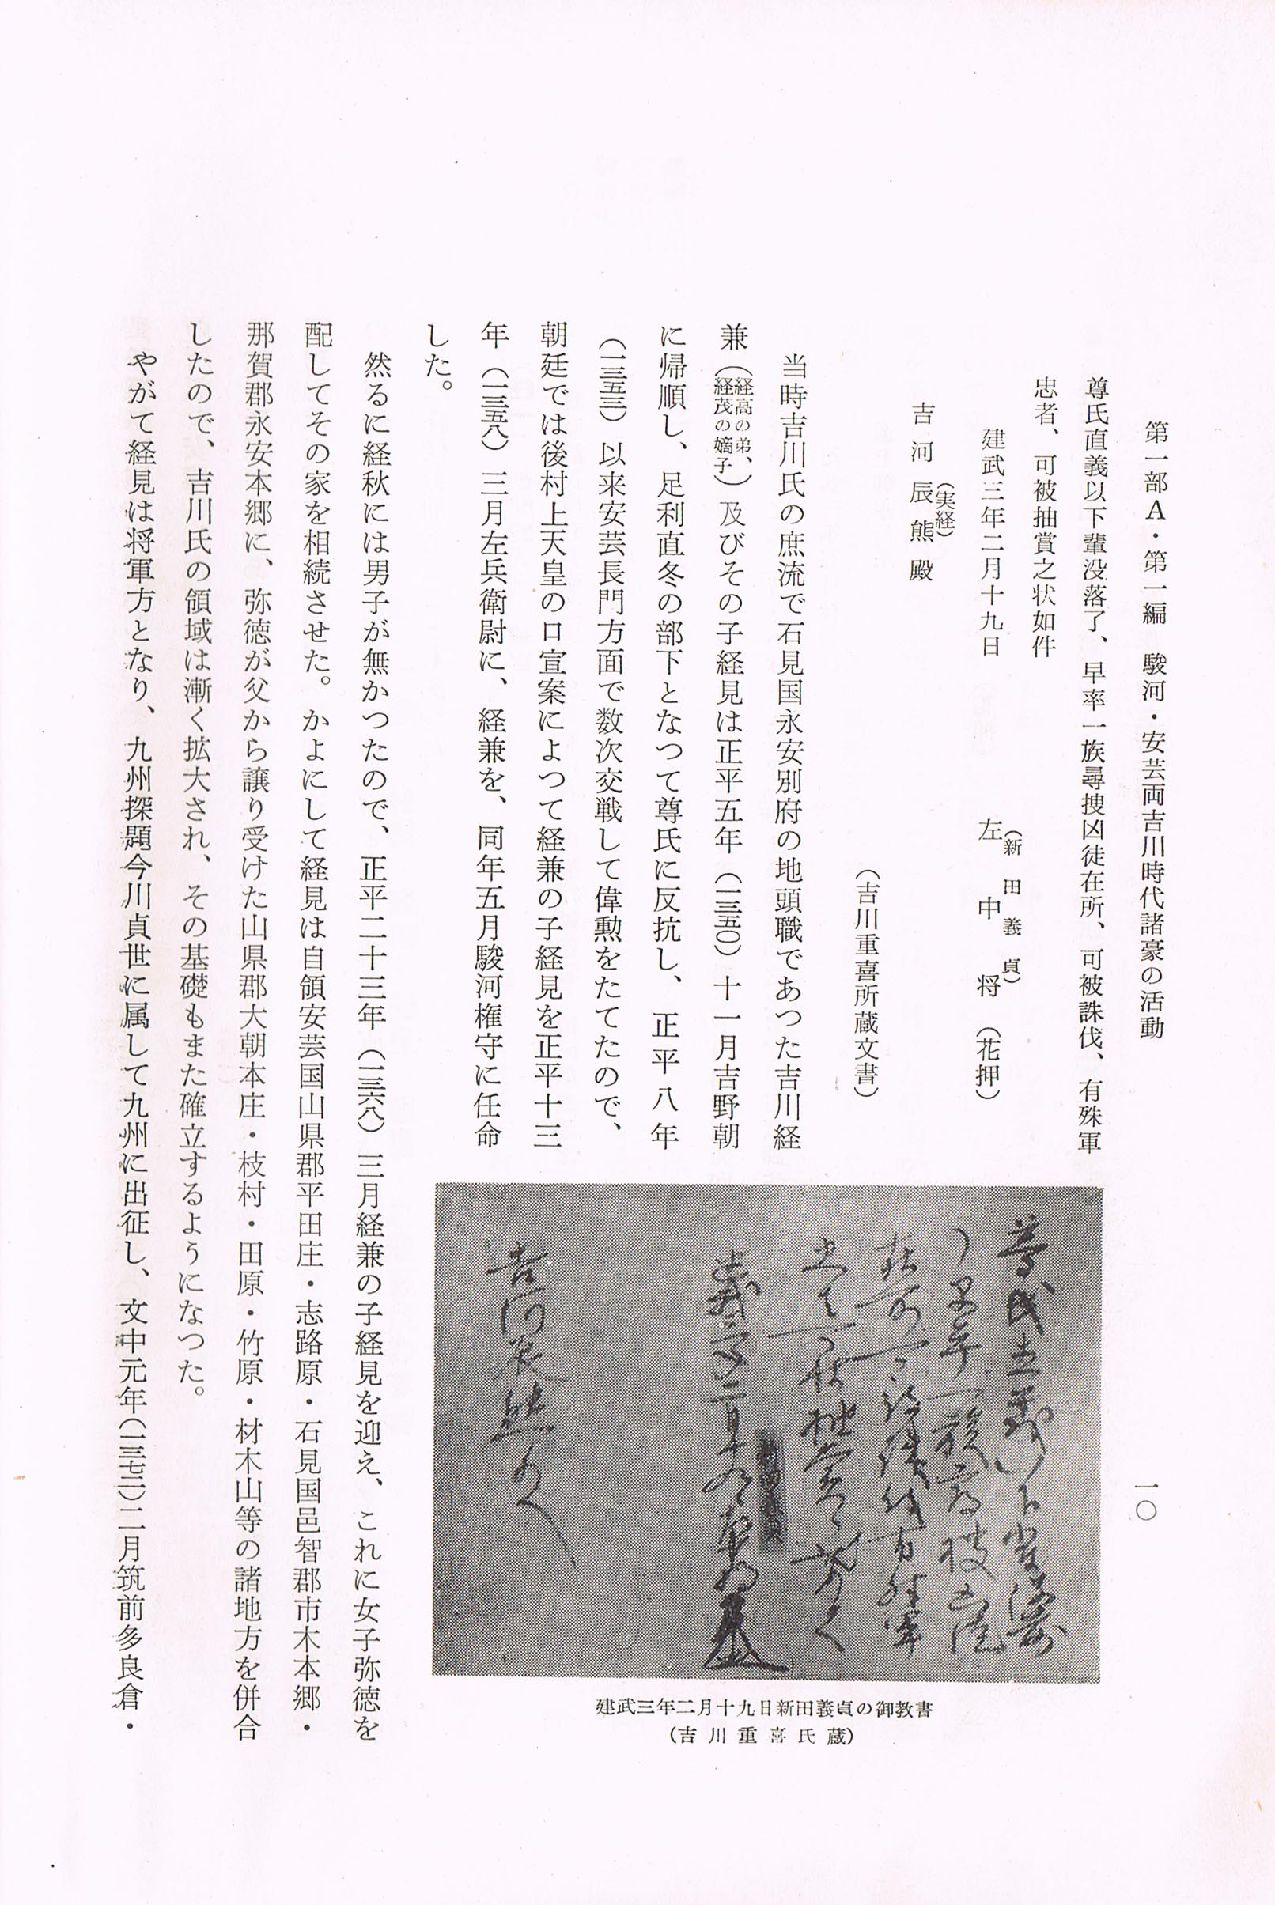 第一部A・第一編　駿河・安芸両吉川時代諸豪の活動
一〇
尊氏直義以下輩没落了、早率一族尋捜凶徒在所、可被誅伐、有殊軍
忠者、可被抽賞之状如件
建武三年二月十九日
(新田義貞)
左中将（花押）
(実経)
吉河辰熊殿
（吉川重喜所蔵文書）
当時吉川氏の庶流で石見国永安別府の地頭職であつた吉川経
兼（経高の弟、経茂の嫡子）及びその子経見は正平五年（一三五〇）十一月吉野朝
に帰順し、足利直冬の部下となつて尊氏に反抗し、正平八年
（一三五三）以来安芸長門方面で数次交戦して偉勲をたてたので、
朝廷では後村上天皇の口宣案によつて経兼の子経見を正平十三
年（一三五八）三月左兵衛尉に、経兼を、同年五月駿河権守に任命
した。
然るに経秋には男子が無かつたので、正平二十三年（一三六八）三月経兼の子経見を迎え、これに女子弥徳を
配してその家を相続させた。かよにして経見は自領安芸国山県郡平田庄・志路原・石見国邑智郡市木本郷・
那賀郡永安本郷に、弥徳が父から譲り受けた山県郡大朝本庄・枝村・田原・竹原・材木山等の諸地方を併合
したので、吉川氏の領域は漸く拡大され、その基礎もまた確立するようになつた。
やがて経見は将軍方となり、九州探題今川貞世に属して九州に出征し、文中元年（一三七二）二月筑前多良倉・
建武三年二月十九日新田義貞の御教書
（吉川重喜氏蔵）